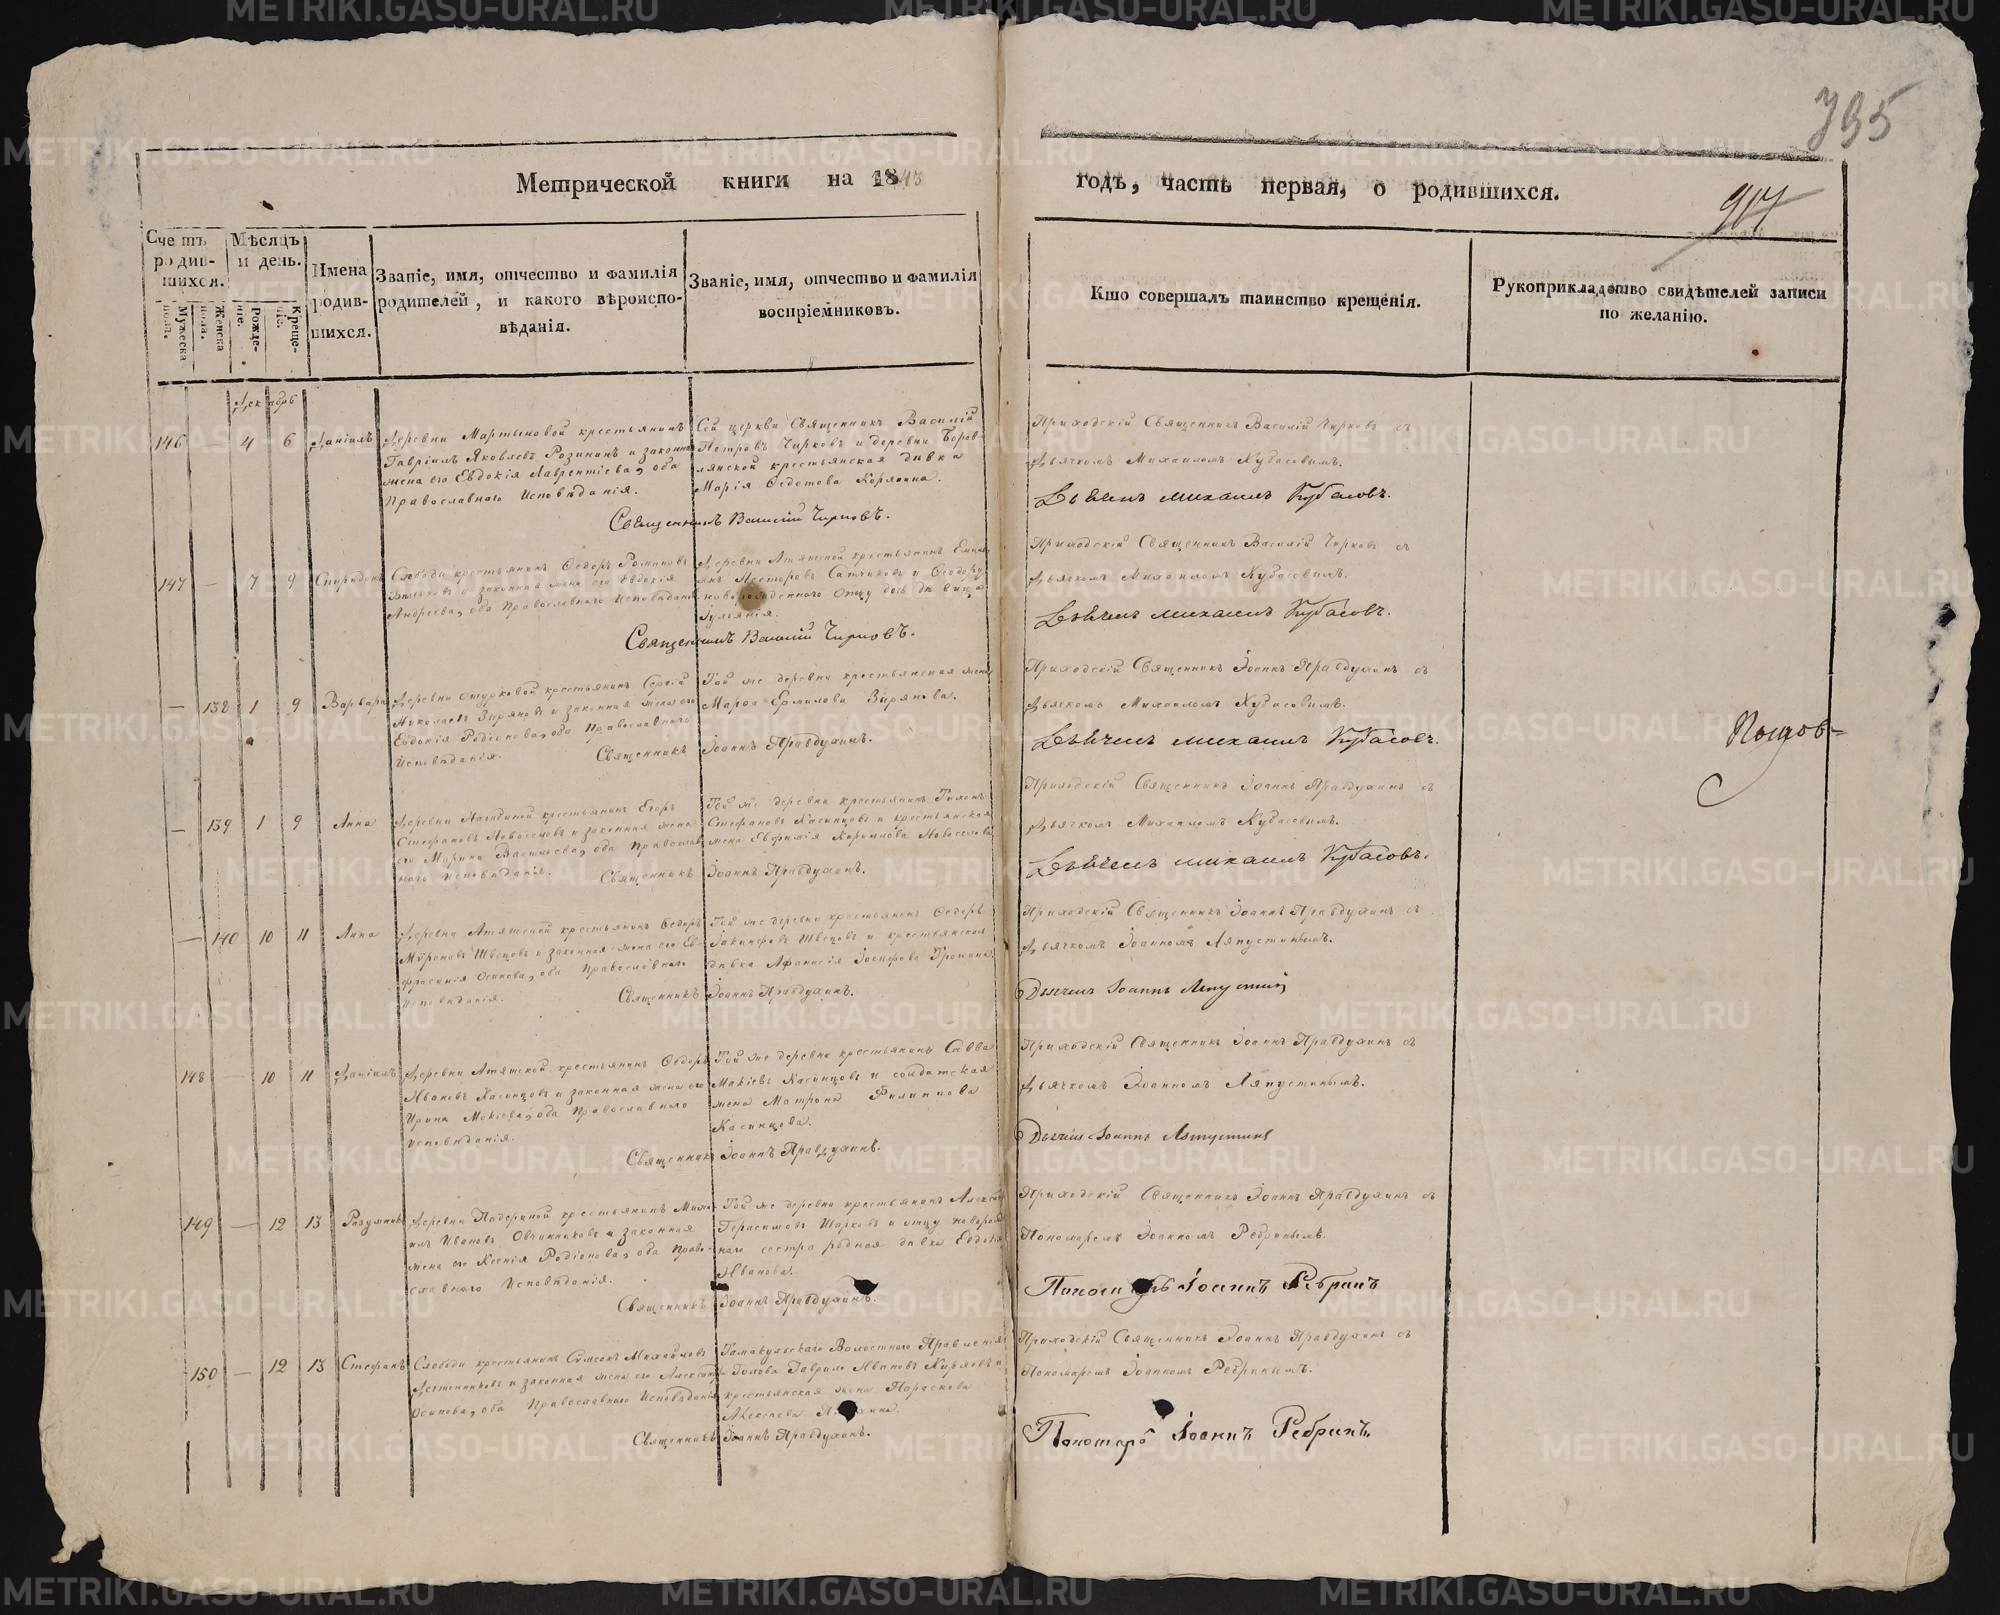 795
Метрической книги на 1843
годъ, часть первая, о родившихся.
917
Счетъ родив-шихся.
Мужеска полъ.
Женска пола.
Мѣсяцъ и день.
Рожде-ніе.
Креще-ніе.
Имена родив-шихся.
Званіе, имя, отчество и фамилія
родителей, и какого вѣроиспо-
вѣданія.
Званіе, имя, отчество и фамилія
воспріемниковъ.
Кто совершалъ таинство крещенія.
Рукоприкладство свидѣтелей записи
по желанію.
Декабрь
146 4 6 Даніилъ
Деревни Мартыновой крестьянинъ
Гавріилъ Яковлевъ Розининъ и законная
жена его Евдокія Лаврентіева, оба
Православнаго Исповѣданія.
Сей церкви Священникъ Василій
Петровъ Чирковъ и деревни
крестьянская дѣвка
Марія Федотова Корякина.
Священникъ Василій Чирковъ.
Приходскій Священникъ Василій Чирковъ съ
Дьячкомъ Михаиломъ Кубасовымъ.
Дьячекъ Михаилъ Кубасовъ.
147 — 7 9 Спиридонъ
Слободы крестьянинъ Ѳедоръ Романовъ
и законная жена его Евдокія
Андреева, оба Православнаго Исповѣданія
Деревни Атяшской крестьянинъ
Несторовъ и Ѳеодору
новорожденнаго отцу дочь дѣвица
Іуліанія.
Священникъ Василій Чирковъ.
Приходскій Священникъ Василій Чирковъ съ
Дьячкомъ Михаиломъ Кубасовымъ.
Дьячекъ Михаилъ Кубасовъ.
— 138 1 9 Варвара
Деревни крестьянинъ Сергій
Николаевъ Зыряновъ и законная жена его
Евдокія Родіонова, оба Православнаго
Исповѣданія.
Той же деревни крестьянская жена
Марѳа Ермилова Зырянова.
Священникъ Іоаннъ Правдухинъ.
Приходскій Священникъ Іоаннъ Правдухинъ съ
Дьячкомъ Михаиломъ Кубасовымъ.
Дьячекъ Михаилъ Кубасовъ.
— 139 1 9 Анна
Деревни крестьянинъ Егоръ
Стефановъ Новоселовъ и законная жена
его Марина Васильева, оба Православ
наго Исповѣданія.
Той же деревни крестьянинъ Тихонъ
Стефановъ Касинцовъ и крестьянская
жена Евфимія Кириллова Новоселова
Священникъ Іоаннъ Правдухинъ.
Приходскій Священникъ Іоаннъ Правдухинъ съ
Дьячкомъ Михаиломъ Кубасовымъ.
Дьячекъ Михаилъ Кубасовъ.
— 140 10 11 Анна
Деревни Атяшской крестьянинъ Ѳедоръ
Мироновъ Швецовъ и законная жена его Ев-
фросинія Осипова, оба Православнаго
исповѣданія.
Той же деревни крестьянинъ Ѳедоръ
Іакинфовъ Швецовъ и крестьянская
дѣвка Афанасія Іосифова
Священникъ Іоаннъ Правдухинъ.
Приходскій Священникъ Іоаннъ Правдухинъ съ
Дьячкомъ Іоанномъ Ляпустинымъ.
Дьячекъ Іоаннъ Ляпустинъ
148 — 10 11 Даніилъ
Деревни Атяшской крестьянинъ Ѳедоръ
Ивановъ Касинцовъ и законная жена его
Ирина Мокіева, оба Православнаго
исповѣданія.
Той же деревни крестьянинъ Савва
Мокіевъ Касинцовъ и солдатская
жена Матрона Филиппова
Касинцова.
Священникъ Іоаннъ Правдухинъ.
Приходскій Священникъ Іоаннъ Правдухинъ съ
Дьячкомъ Іоанномъ Ляпустинымъ.
Дьячекъ Іоаннъ Ляпустинъ
149 — 12 13 Разумникъ
Деревни Падериной крестьянинъ Миха-
илъ Ивановъ Овчинниковъ и законная
жена его Ксенія Родіонова, оба Право-
славнаго Исповѣданія.
Той же деревни крестьянинъ Алексѣй
Герасимовъ Шарковъ и отцу новорож
наго сестра родная дѣвка Евдокія
Иванова.
Священникъ Іоаннъ Правдухинъ.
Приходскій Священникъ Іоаннъ Правдухинъ съ
Пономаремъ Іоанномъ Ребринымъ.
Пономарь Іоаннъ Ребринъ
150 — 12 13 Стефанъ
Слободы крестьянинъ Сѵмеонъ Михайловъ
и законная жена его Александра
Осипова, оба Православнаго Исповѣданія
Тамакульскаго Волостнаго Правленія
Голова Гаврило Ивановъ и
крестьянская жена Параскева
Алексѣева
Священникъ Іоаннъ Правдухинъ.
Приходскій Священникъ Іоаннъ Правдухинъ съ
Пономаремъ Іоанномъ Ребринымъ.
Пономарь Іоаннъ Ребринъ
METRIKI.GASO-URAL.RU